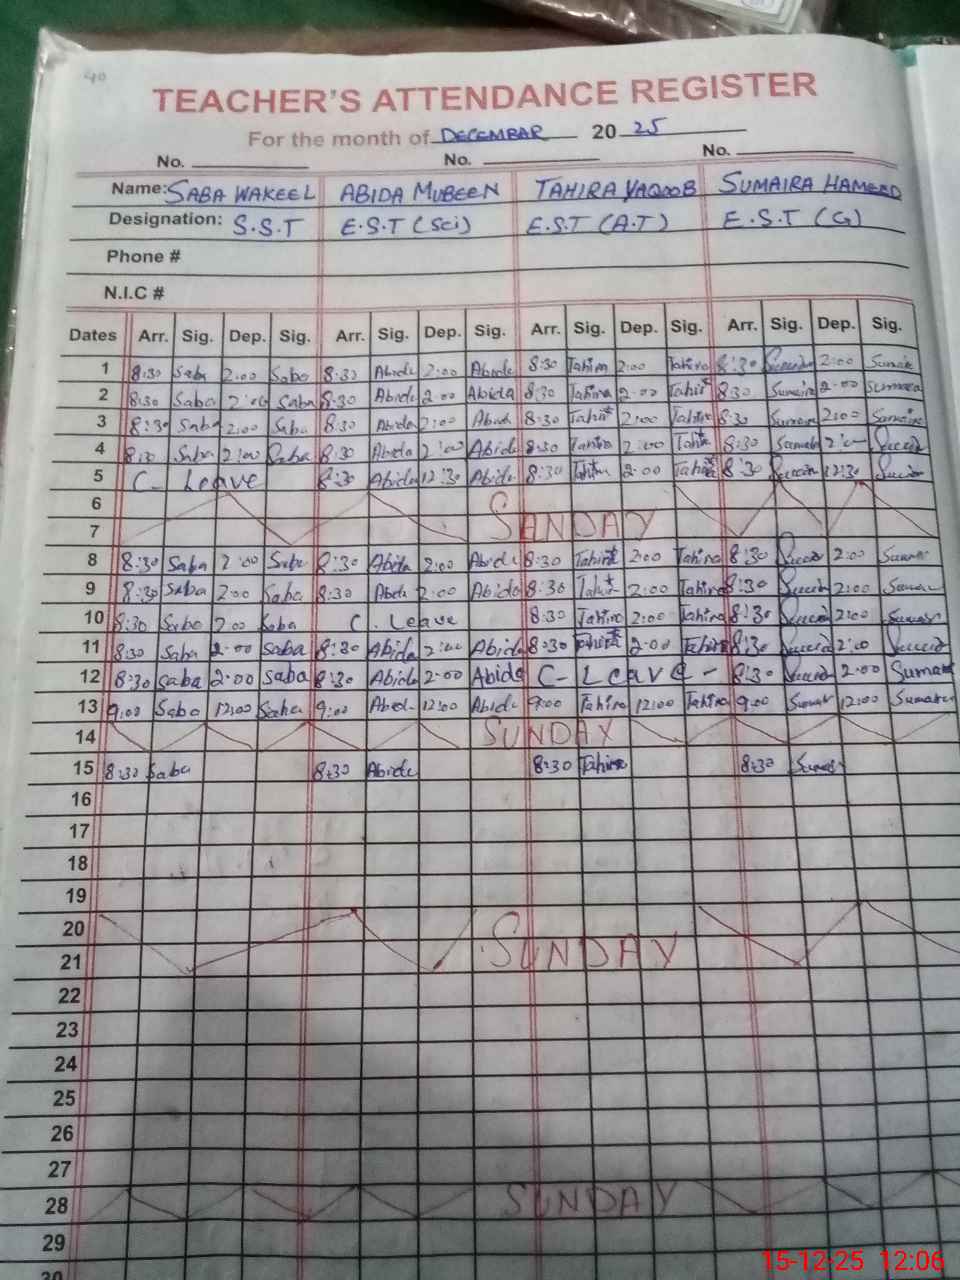 40
TEACHER'S ATTENDANCE REGISTER
For the month of DECEMBAR 20 25
No. No. No.
Name: SABA WAKEEL ABIDA MUBEEN TAHIRA YAQOOB SUMAIRA HAMEED
Designation: S.S.T E.S.T (Sci) E.S.T (A.T) E.S.T (G)
Phone #
N.I.C #
Dates Arr. Sig. Dep. Sig. Arr. Sig. Dep. Sig. Arr. Sig. Dep. Sig. Arr. Sig. Dep. Sig.
1 8:30 Saba 2:00 Saba 8:30 Abida 2:00 Abida 8:30 Tahira 2:00 Tahira 8:30 2:00
2 8:30 Saba 2:00 Saba 8:30 Abida 2:00 Abida 8:30 Tahira 2:00 Tahira 8:30 2:00
3 8:30 Saba 2:00 Saba 8:30 Abida 2:00 Abida 8:30 Tahira 2:00 Tahira 8:30 2:00
4 8:30 Saba 2:00 Saba 8:30 Abida 2:00 Abida 8:30 Tahira 2:00 Tahira 8:30 2:00
5 C- Leave 8:30 Abida 12:30 Abida 8:30 Tahira 2:00 Tahira 8:30 12:30
6
7 SANDAY
8 8:30 Saba 2:00 Saba 8:30 Abida 2:00 Abida 8:30 Tahira 2:00 Tahira 8:30 2:00
9 8:30 Saba 2:00 Saba 8:30 Abida 2:00 Abida 8:30 Tahira 2:00 Tahira 8:30 2:00
10 8:30 Saba 2:00 Saba C. Leave 8:30 Tahira 2:00 Tahira 8:30 2:00
11 8:30 Saba 2:00 Saba 8:30 Abida 2:00 Abida 8:30 Tahira 2:00 Tahira 8:30 2:00
12 8:30 Saba 2:00 Saba 8:30 Abida 2:00 Abida C- Leave - 8:30 2:00
13 9:00 Saba 12:00 Saba 9:00 Abida 12:00 Abida 9:00 Tahira 12:00 Tahira 9:00 12:00
14 SUNDAY
15 8:30 Saba 8:30 Abida 8:30 Tahira 8:30
16
17
18
19
20
21 SUNDAY
22
23
24
25
26
27
28 SUNDAY
29
30
15-12-25 12:06